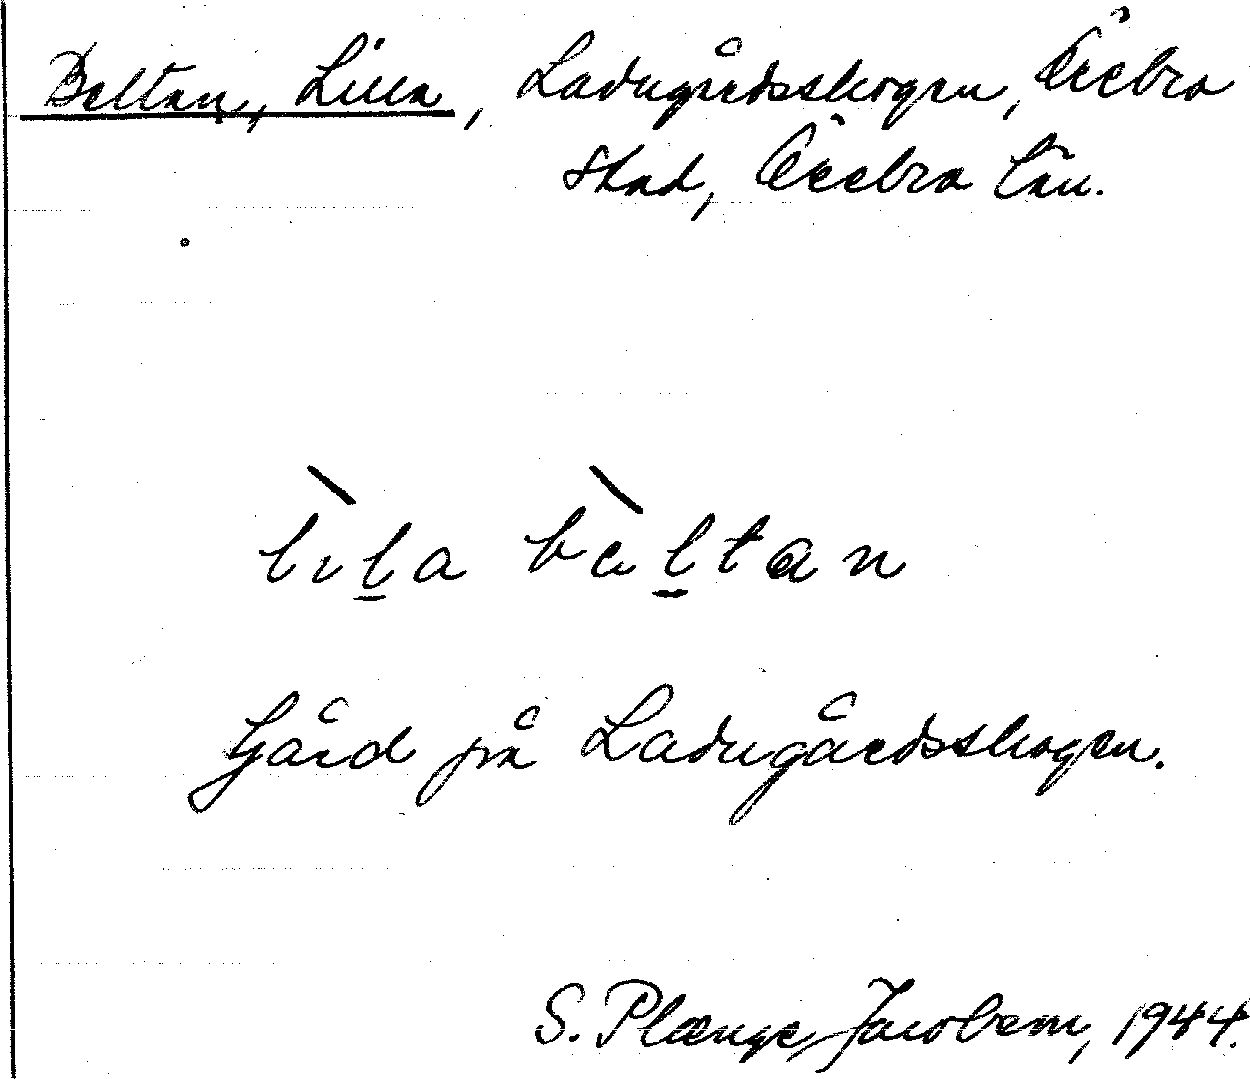 Beltan, Lilla, Ladugårdsskogen, Örebro
stad, Örebro län.
lìḷa bèḷtan
Gård på Ladugårdsskogen.
S. Plænge Jacobson, 1944.